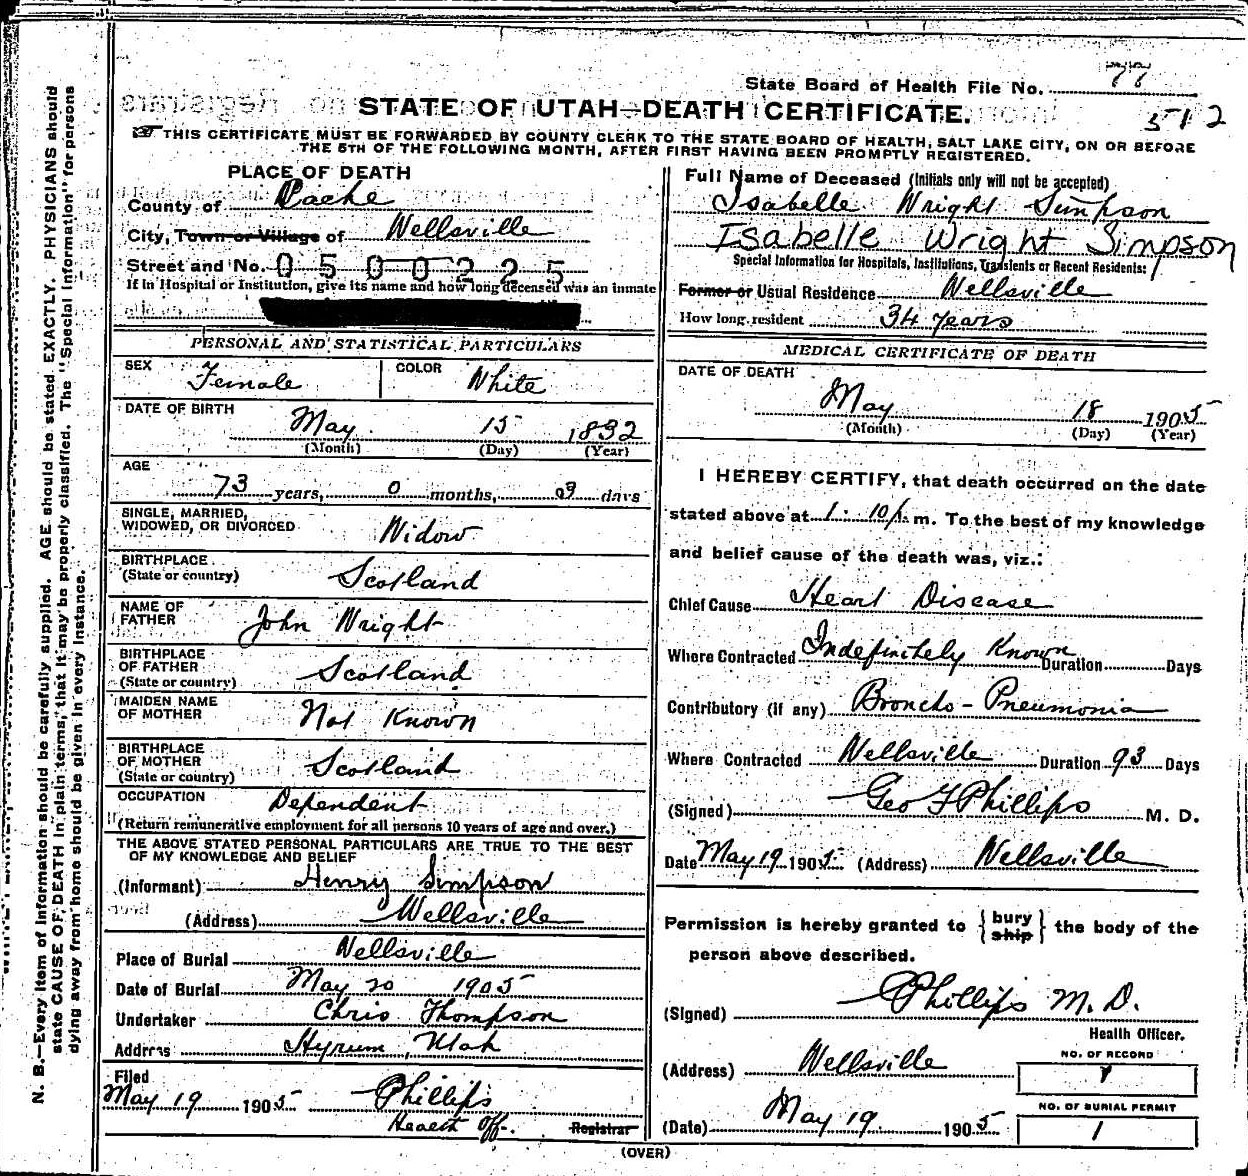 State Board of Health File No. 77
STATE OF UTAH—DEATH CERTIFICATE.
512
THIS CERTIFICATE MUST BE FORWARDED BY COUNTY CLERK TO THE STATE BOARD OF HEALTH, SALT LAKE CITY, ON OR BEFORE
THE 5TH OF THE FOLLOWING MONTH, AFTER FIRST HAVING BEEN PROMPTLY REGISTERED.
PLACE OF DEATH
County of Cache
City, Town or Village of Wellsville
Street and No. 0500225
If in Hospital or Institution, give its name and how long deceased was an inmate
PERSONAL AND STATISTICAL PARTICULARS
SEX Female COLOR White
DATE OF BIRTH May 15 1832
(Month) (Day) (Year)
AGE
73 years, 0 months, 03 days
SINGLE, MARRIED,
WIDOWED, OR DIVORCED Widow
BIRTHPLACE
(State or country) Scotland
NAME OF
FATHER John Wright
BIRTHPLACE
OF FATHER
(State or country) Scotland
MAIDEN NAME
OF MOTHER Not Known
BIRTHPLACE
OF MOTHER
(State or country) Scotland
OCCUPATION Dependent
(Return remunerative employment for all persons 10 years of age and over.)
THE ABOVE STATED PERSONAL PARTICULARS ARE TRUE TO THE BEST
OF MY KNOWLEDGE AND BELIEF
(Informant) Henry Simpson
(Address) Wellsville
Place of Burial Wellsville
Date of Burial May 20 1905
Undertaker Chris Thompson
Address Hyrum, Utah
Filed
May 19 1905 Phillips
Health Off. Registrar
Full Name of Deceased (Initials only will not be accepted)
Isabelle Wright Simpson
Isabelle Wright Simpson
Special Information for Hospitals, Institutions, Transients or Recent Residents:
Former or Usual Residence Wellsville
How long resident 34 years
MEDICAL CERTIFICATE OF DEATH
DATE OF DEATH
May 18 1905
(Month) (Day) (Year)
I HEREBY CERTIFY, that death occurred on the date
stated above at 1:10 P. m. To the best of my knowledge
and belief cause of the death was, viz.:
Chief Cause Heart Disease
Where Contracted Indefinitely Known Duration Days
Contributory (if any) Broncho-Pneumonia
Where Contracted Wellsville Duration 93 Days
(Signed) Geo F Phillips M. D.
Date May 19 1905 (Address) Wellsville
Permission is hereby granted to { bury ship } the body of the
person above described.
(Signed) Phillips M. D.
Health Officer.
(Address) Wellsville
NO. OF RECORD
(Date) May 19 1905
NO. OF BURIAL PERMIT
1
(OVER)
N. B.—Every item of information should be carefully supplied. AGE should be stated EXACTLY. PHYSICIANS should
state CAUSE OF DEATH in plain terms, that it may be properly classified. The "Special Information" for persons
dying away from home should be given in every instance.